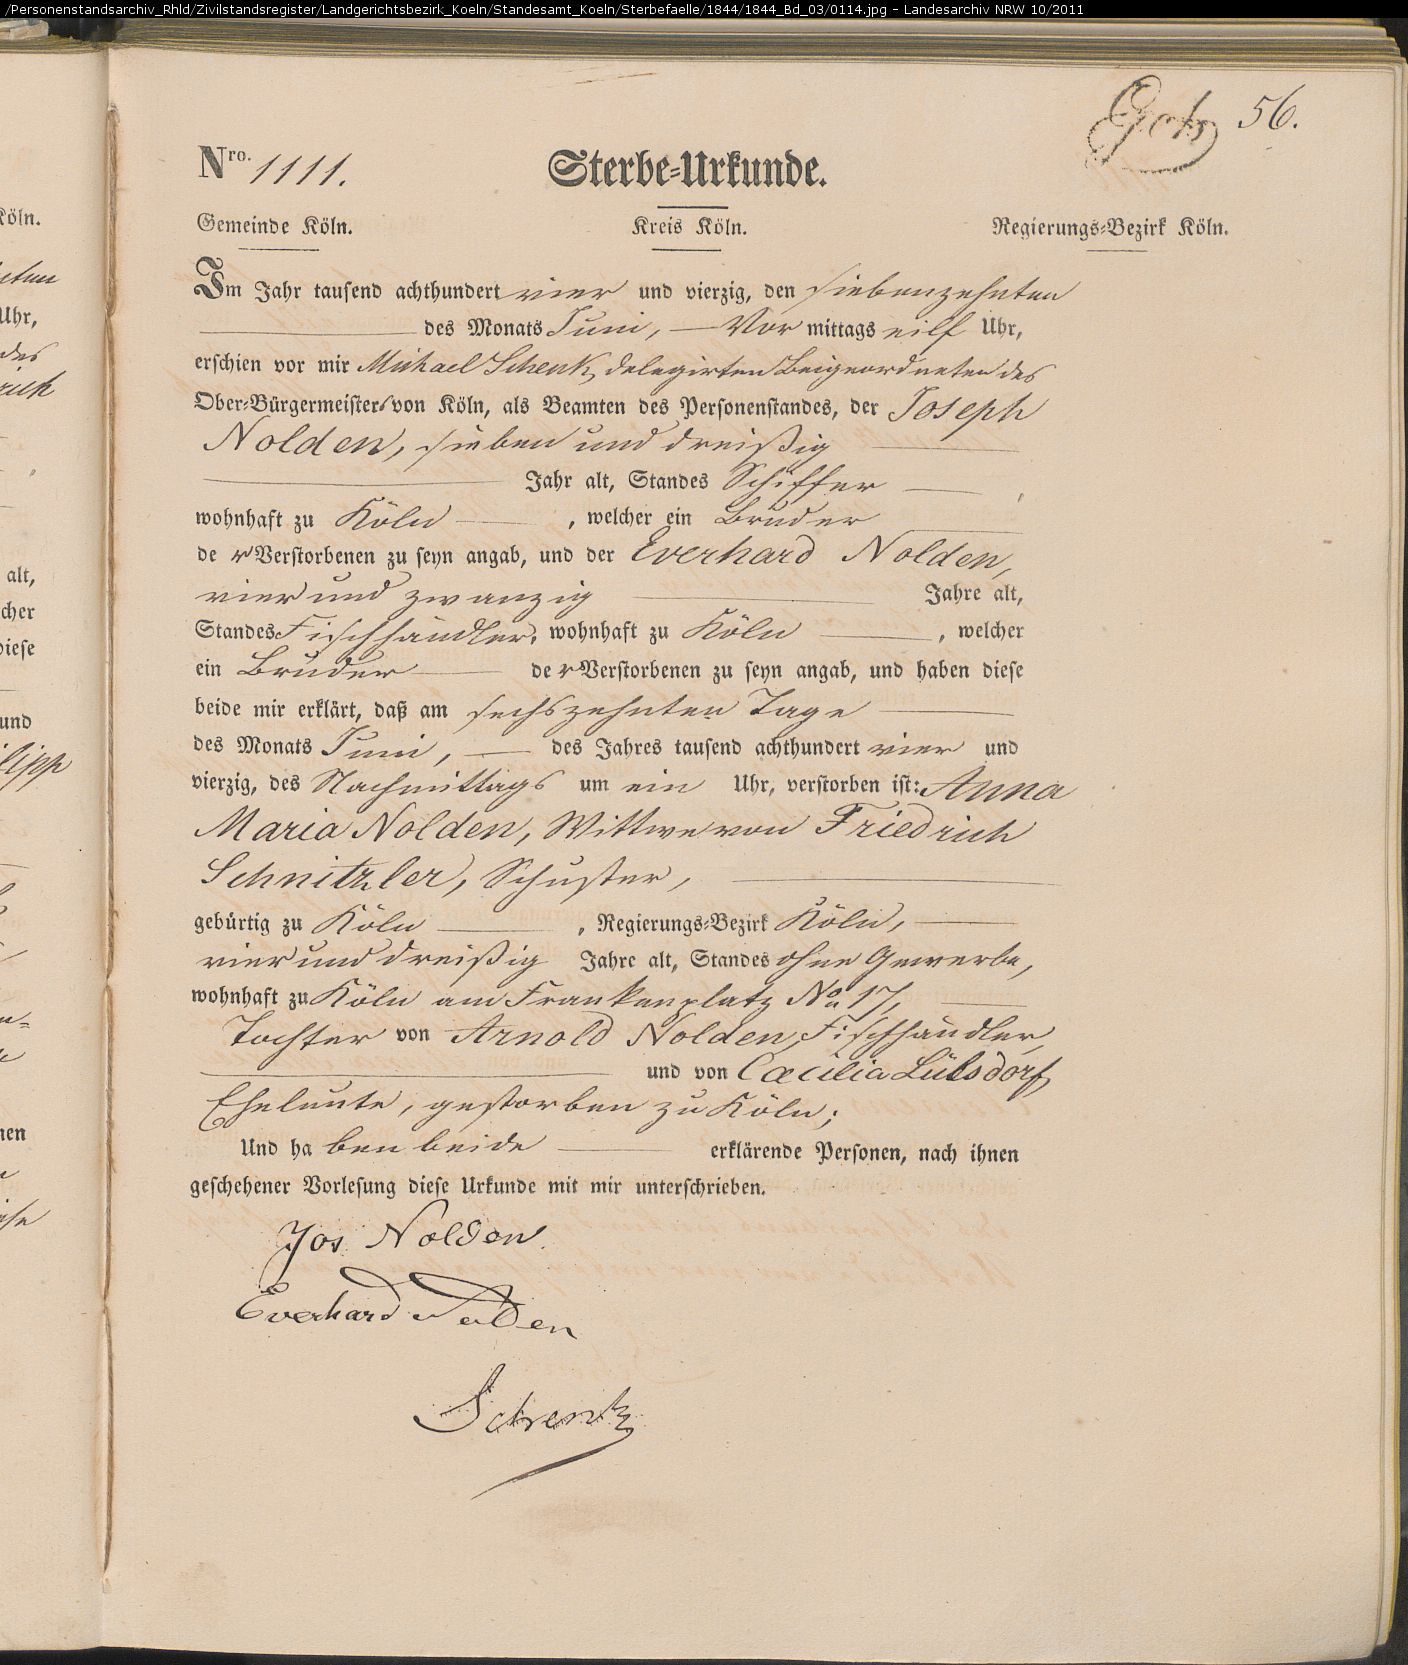 /Personenstandsarchiv_Rhld/Zivilstandsregister/Landgerichtsbezirk_Koeln/Standesamt_Koeln/Sterbefaelle/1844/1844_Bd_03/0114.jpg - Landesarchiv NRW 10/2011
56.
Nro. 1111.
Sterbe-Urkunde.
Gemeinde Köln. Kreis Köln. Regierungs-Bezirk Köln.
Im Jahr tausend achthundert vier und vierzig, den siebenzehnten
des Monats Juni, Vor mittags eilf Uhr,
erschien vor mir Michael Schenk, delegirten Beigeordneten des
Ober-Bürgermeisters von Köln, als Beamten des Personenstandes, der Joseph
Nolden, sieben und dreißig
Jahr alt, Standes Schiffer,
wohnhaft zu Köln, welcher ein Bruder
der Verstorbenen zu seyn angab, und der Everhard Nolden,
vier und zwanzig Jahre alt,
Standes Fischhändler, wohnhaft zu Köln, welcher
ein Bruder der Verstorbenen zu seyn angab, und haben diese
beide mir erklärt, daß am sechszehnten Tage
des Monats Juni, des Jahres tausend achthundert vier und
vierzig, des Nachmittags um ein Uhr, verstorben ist: Anna
Maria Nolden, Wittwe von Friedrich
Schnitzler, Schuster,
gebürtig zu Köln, Regierungs-Bezirk Köln,
vier und dreißig Jahre alt, Standes ohne Gewerbe,
wohnhaft zu Köln am Frankenplatz No 17,
Tochter von Arnold Nolden, Fischhändler,
und von Cæcilia Lülsdorf,
Eheleute, gestorben zu Köln;
Und haben beide erklärende Personen, nach ihnen
geschehener Vorlesung diese Urkunde mit mir unterschrieben.
Jos Nolden
Everhard Nolden
Schenk